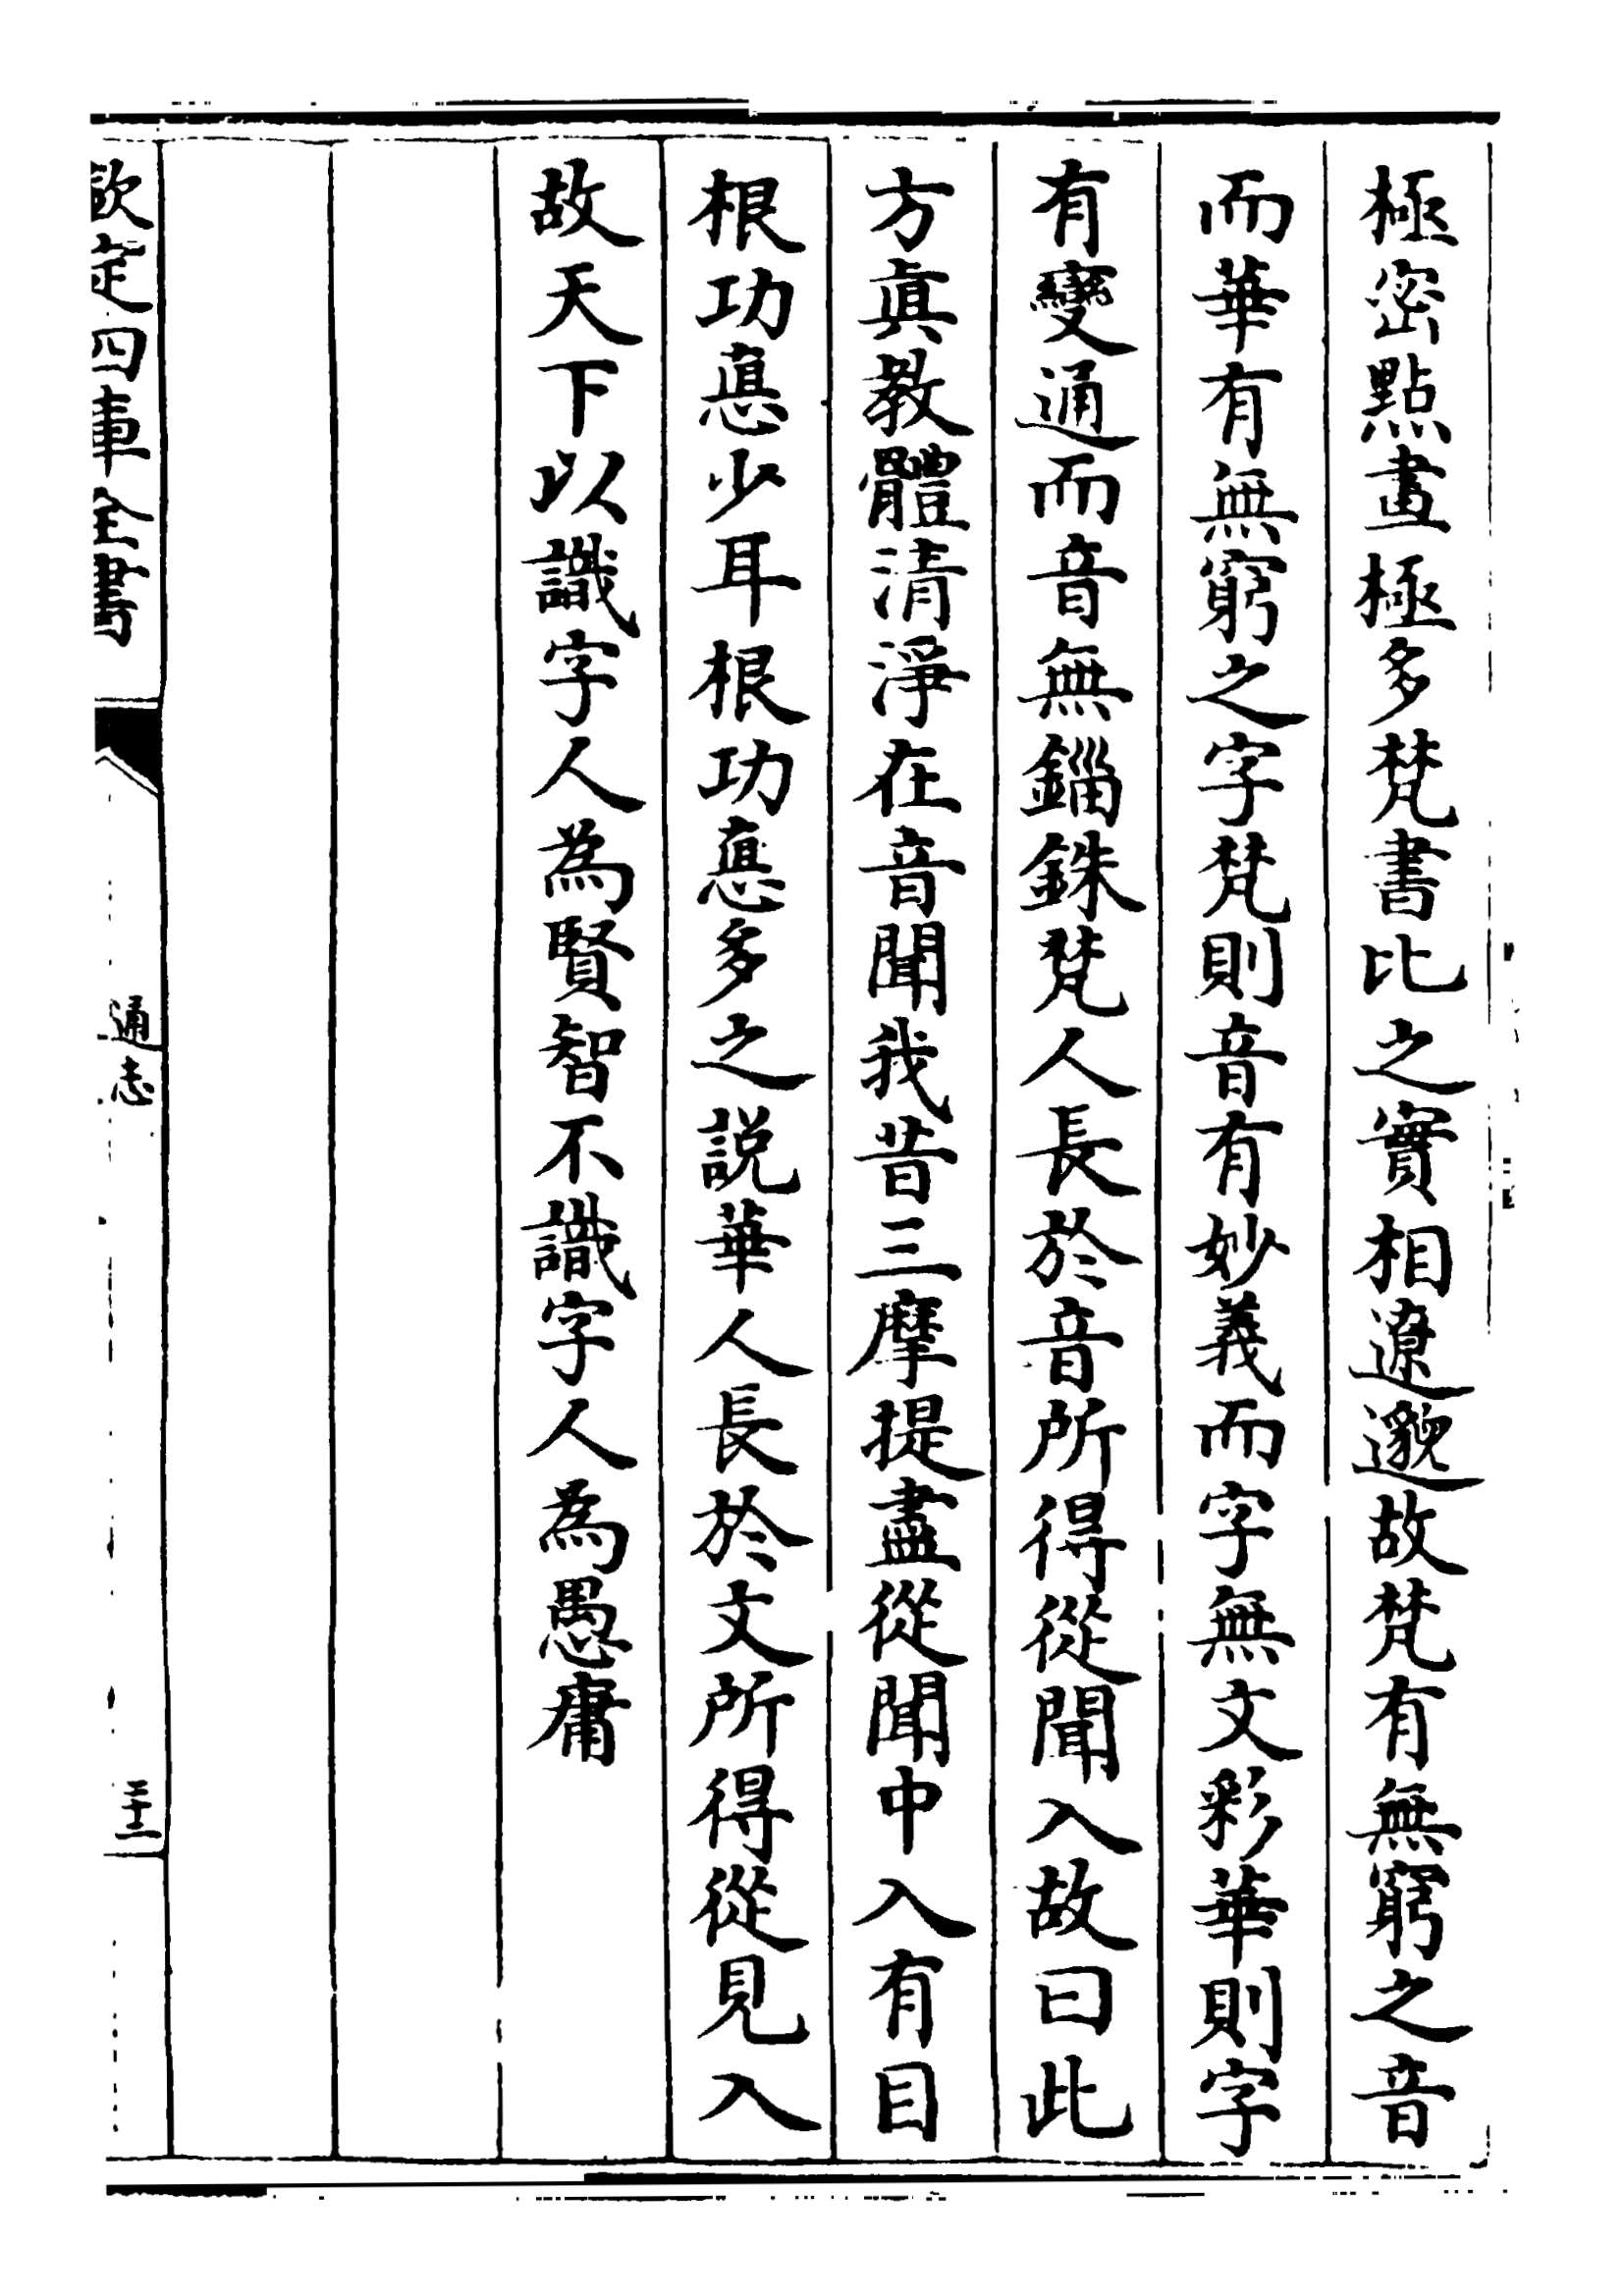 極密點畫極多梵書比之實相遼邈故梵有無窮之音
而華有無窮之字梵則音有妙義而字無文彩華則字
有變通而音無錙銖梵人長於音所得從聞入故曰此
方真教體清淨在音聞我昔三摩提盡從聞中入有目
根功悳少耳根功悳多之説華人長於文所得從見入
故天下以識字人為賢智不識字人為愚庸
欽定四庫全書
通志
三十二